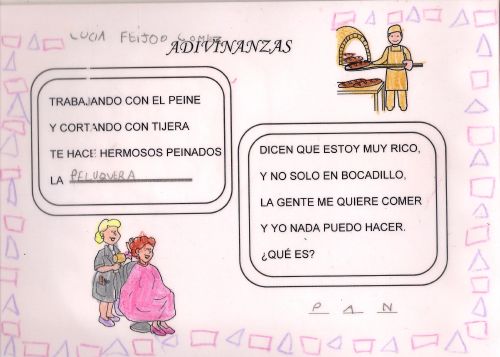 LUCIA FEIJOO GOMEZ
ADIVINANZAS
TRABAJANDO CON EL PEINE
Y CORTANDO CON TIJERA
TE HACE HERMOSOS PEINADOS
LA PELUQUERA
DICEN QUE ESTOY MUY RICO,
Y NO SOLO EN BOCADILLO,
LA GENTE ME QUIERE COMER
Y YO NADA PUEDO HACER.
¿QUÉ ES?
P A N